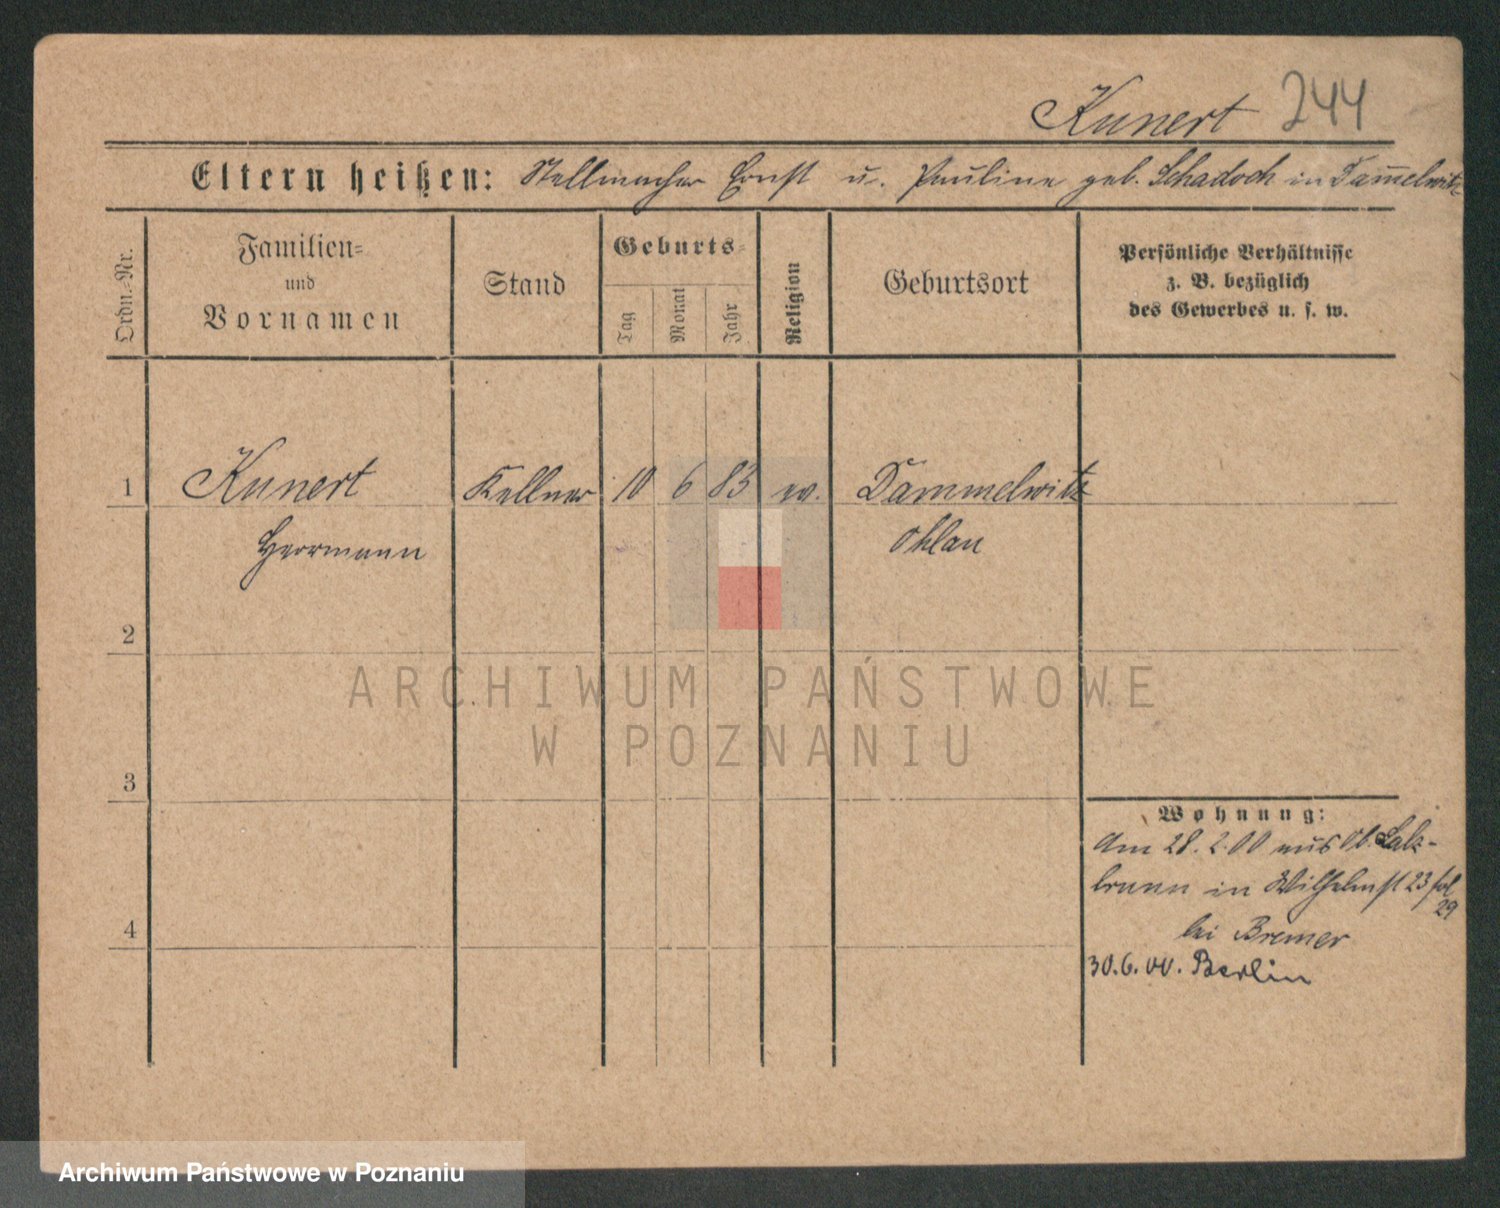 Kunert 244
Eltern heißen: Stellmacher Ernst u. Pauline geb. Schadock in Dam̅elwitz
Ordn.-Nr.
Familien-
und
Vornamen
Stand
Geburts-
Tag
Monat
Jahr
Religion
Geburtsort
Persönliche Verhältnisse
z. B. bezüglich
des Gewerbes u. s. w.
1 Kunert Kellner 10 6 83 ev. Dammelwitz
Herrmann Ohlau
2
3
4
Wohnung:
Am 28.2.00 aus Ob. Salz-
brunn in Wilhelmst 23 fol
29
bei Bremer
30.6.00. Berlin
ARCHIWUM PAŃSTWOWE
W POZNANIU
Archiwum Państwowe w Poznaniu